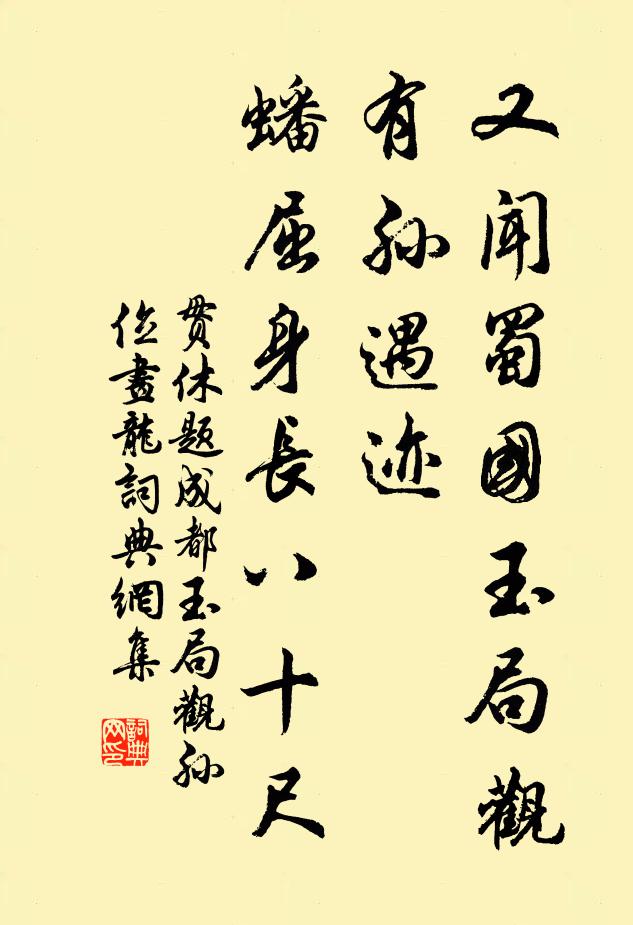 又闻蜀國玉局觀
有孙遇迹
蟠屈身長八十尺
贯休题成都玉局觀孙
位畫龍詞典網集
詞典
网印